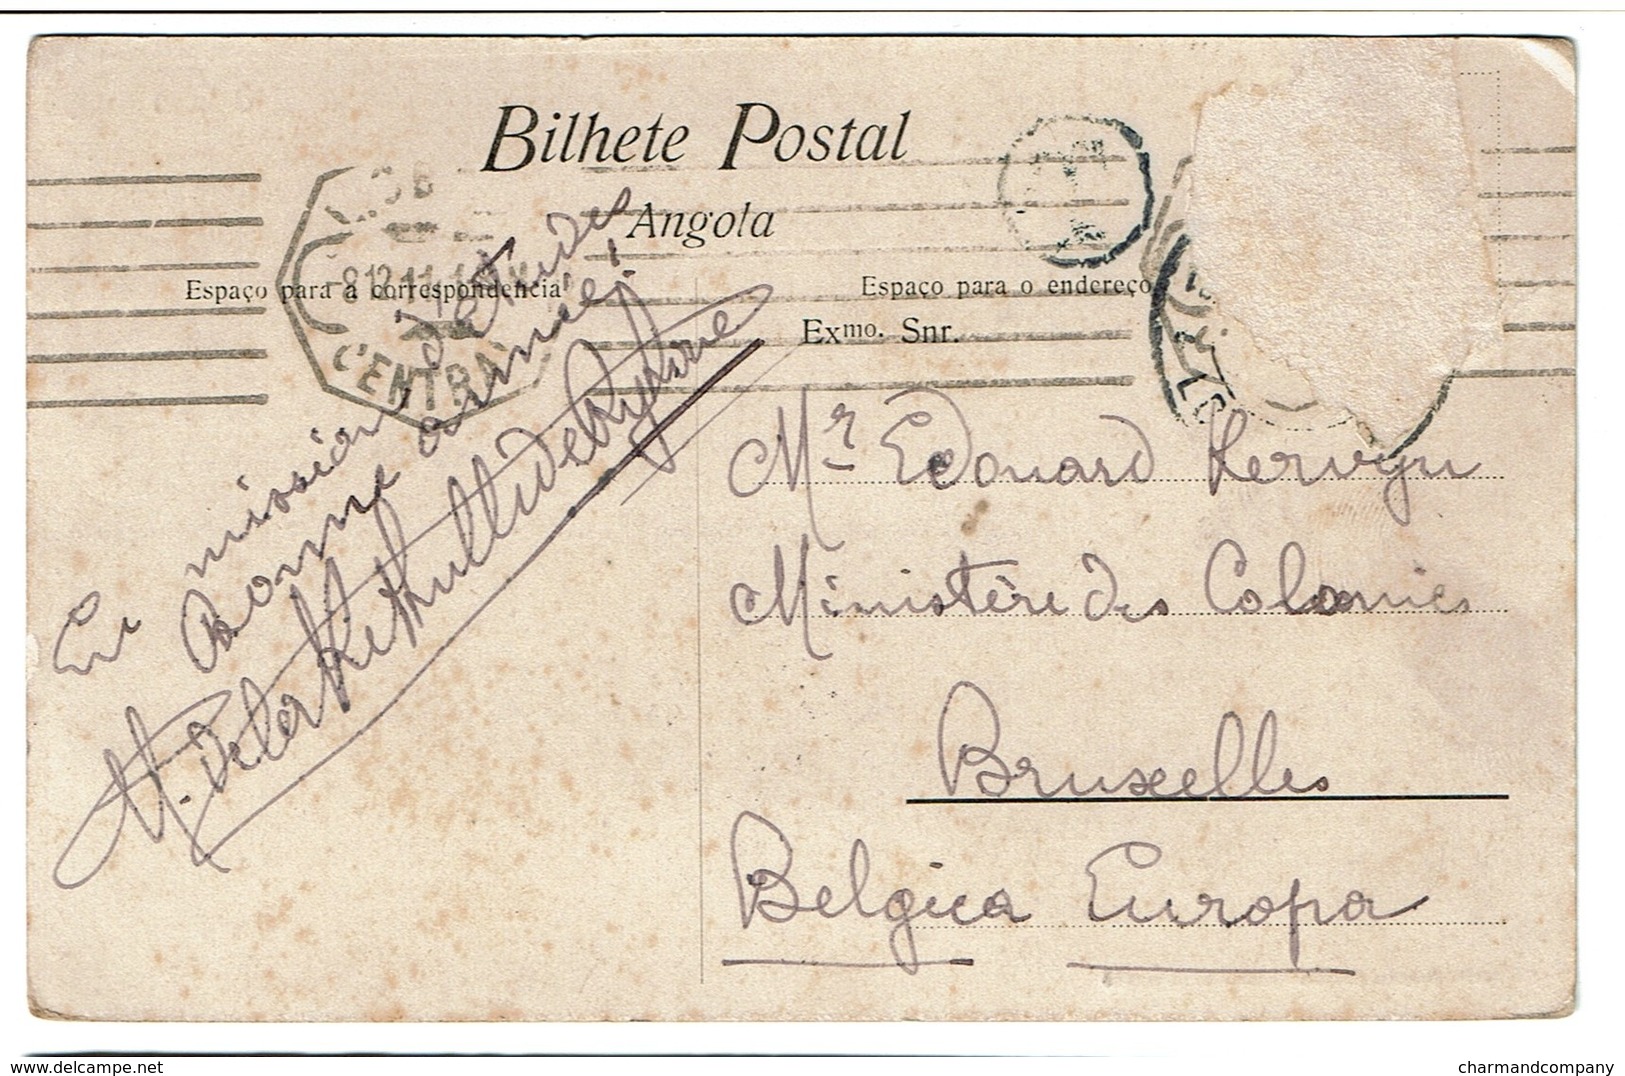 Bilhete Postal
Angola
Espaço para a correspondencia
Espaço para o endereço
Exmo. Snr.
CENTRAL
En mission d'etudes
Bonne année!
Mr Edouard Kervyn
Ministère des Colonies
Bruxelles
Belgica Europa
delcampe.net
charmandcompany